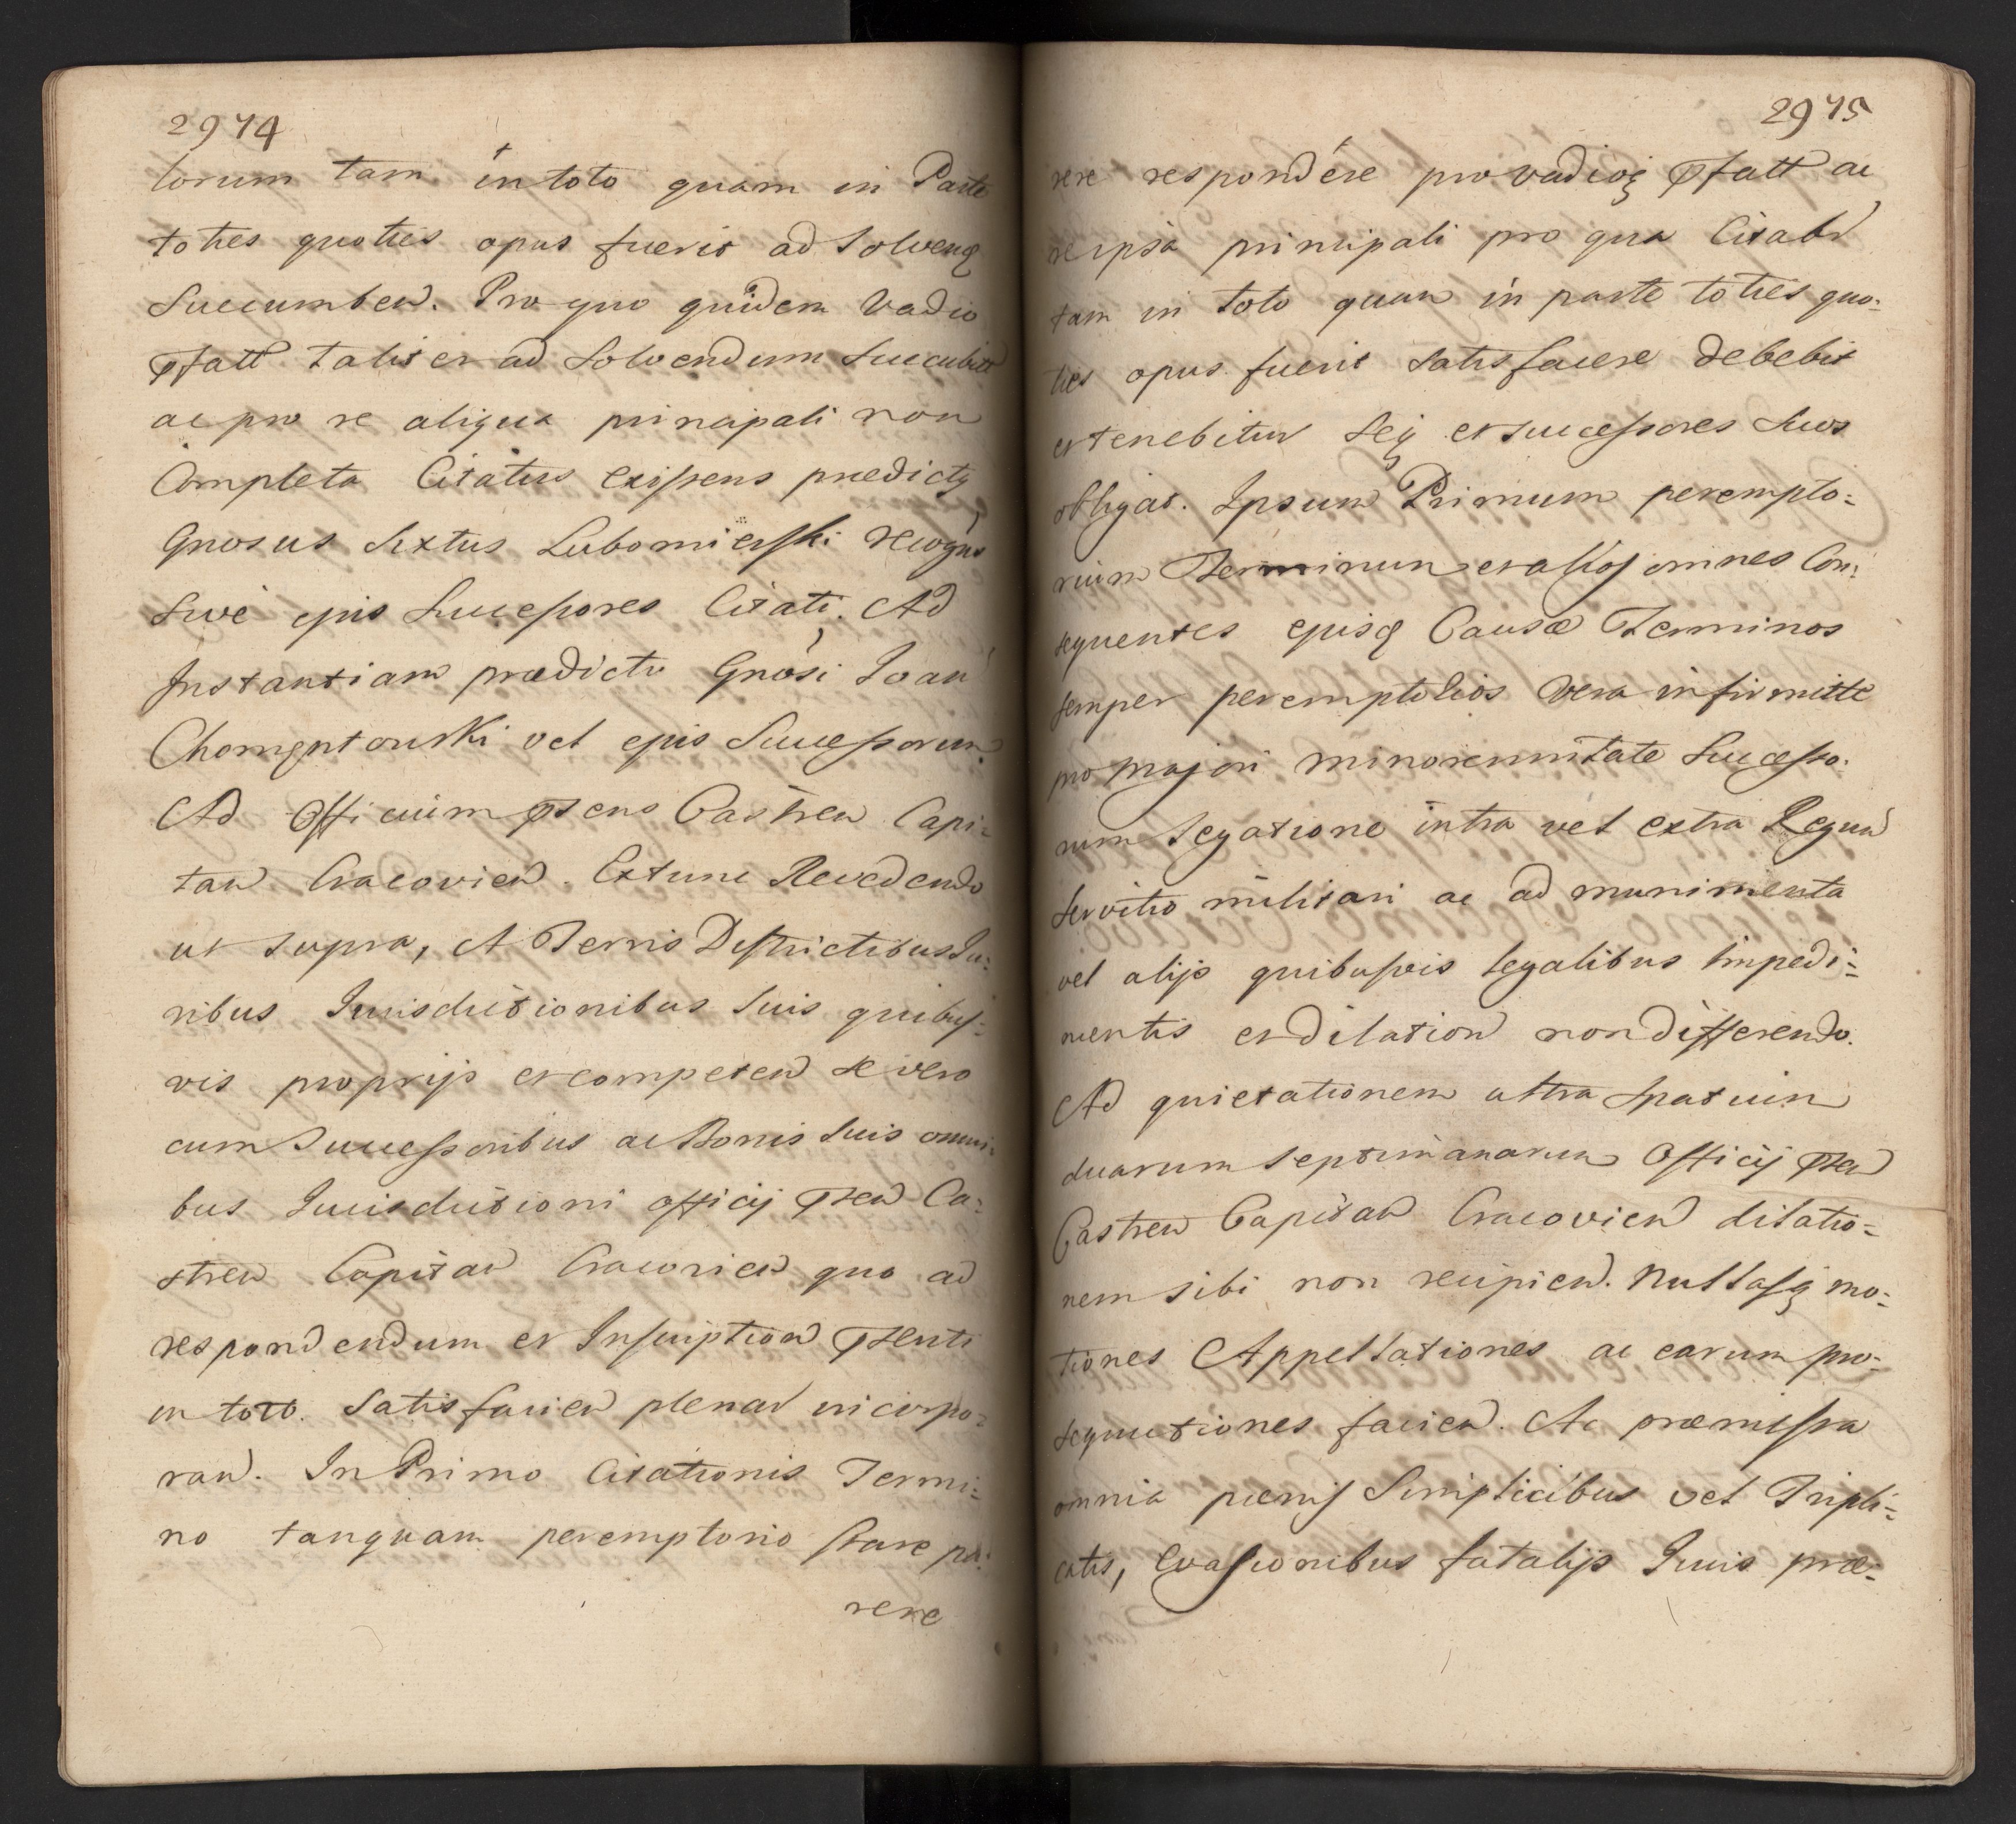 2974
lorum tam in toto quam in Parte
toties quoties opus fuerit ad Solvenq
Succumben. Pro quo quidem Vadio
Pfatt taliter ad Solvendum Succubitt
ac pro re aliqua principali non
Completa Citatus existens prædicty
Gnosus Sixtus Lubomierski recogns
Sive ejus Successores Citati. Ad
Instantiam prædicti Gnosi Joan
Chomentowski vel ejus Successorum
Ad Officium Psens Castren Capi=
tan Cracovien. Extunc Recedendo
ut supra, A Terris Districtibus Ju=
ribus Jurisdictionibus Suis quibus=
vis proprijs et competen se vero
cum Successoribus ac Bonis Suis omni=
bus Jurisdictioni officij Psen Ca=
stren Capitan Cracovien quo ad
respondendum et Inscription Psenti
in toto Satisfacien plenar incorpo=
ran. In Primo Citationis Termi=
no tanquam peremptorio stare pa=
rere
2975
rere respondére pro vadioq Pfatt ac
re ipsa principali pro qua Citabr
tam in Toto quam in parte toties quo=
ties opus fuerit Satisfacere debebit
et tenebitur Seq et successores Suos
obligat. Ipsum Primum perempto=
rium Terminum et alios omnes Con=
sequentes ejusq Causæ Terminos
semper peremptorios Vera infirmitte
pro majori minorennitate Successo=
rum Legatione intra vel extra Regnu
Servitio militari ac ad munimenta
vel alijs quibusvis legalibus Impedi=
mentis et dilation non differendo.
Ad quietationem ultra Spatium
duarum Septimanarum Officij Psen
Castren Capitan Cracovien dilatio=
nem sibi non recipien. Nullasq mo=
tiones Appellationes ac earum pro=
sequutiones facien. Ac præmissa
omnia pœnis Simplicibus vel Tripli=
catis, Evasionibus fatalijs Juris præ=